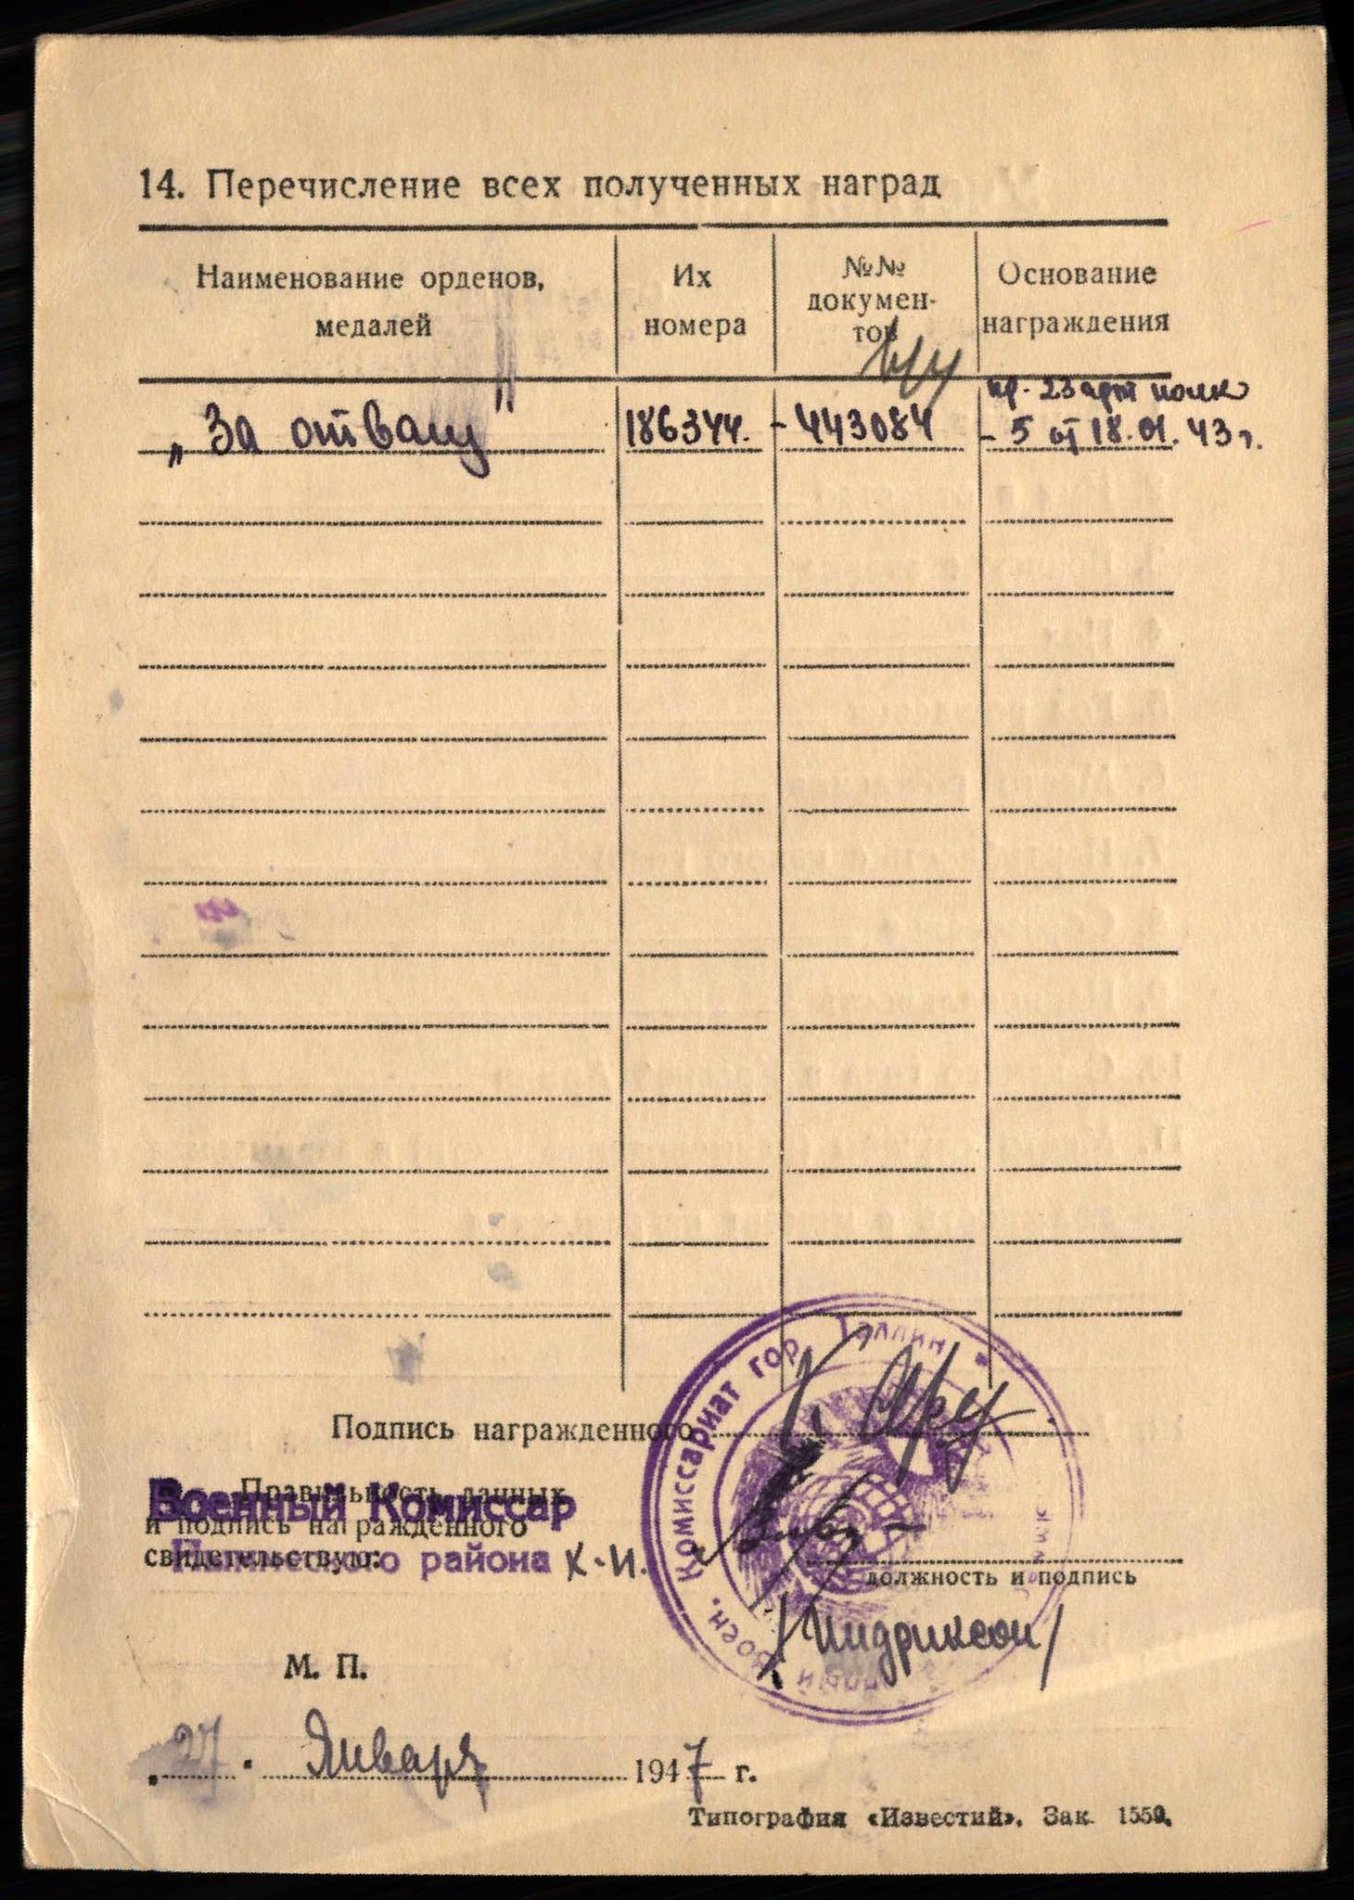 14. Перечисление всех полученных наград
Наименование орденов, медалей
Их номера
№№ документов
Основание награждения
„За отвагу" 186344. - 443084 пр. 23 арт полк
- 5 от 18.01.43 г.
Подпись награжденного
Правильность данных
и подпись награжденного
свидетельствую:
Военный Комиссар
района К-И.
Комиссариат гор. Таллин
должность и подпись
М. П.
27. Января 1947 г.
Типография «Известий». Зак. 1550.